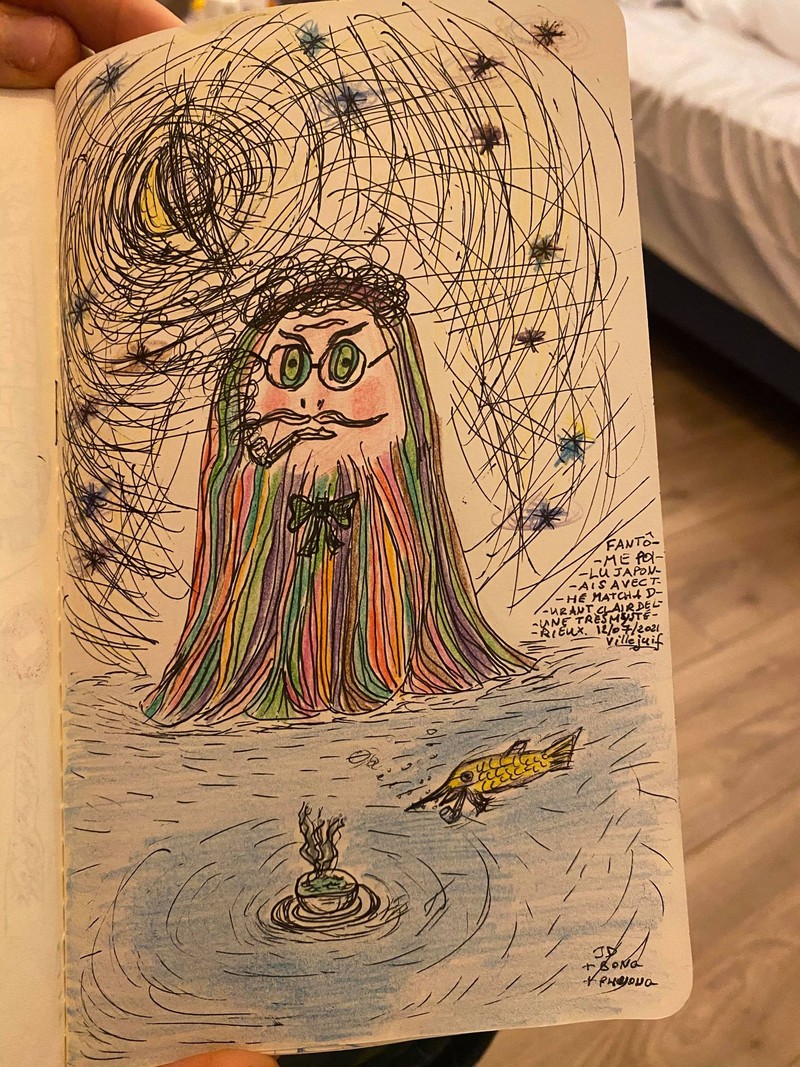 FANTÔ-
-ME POI-
-LU JAPON-
-AIS AVEC T-
-HÉ MATCHA D-
-URANT CLAIR DE L-
-UNE TRES MYSTÉ-
-RIEUX. 12/07/2021
Villejuif
JD
+ BONG
+ PHUONG